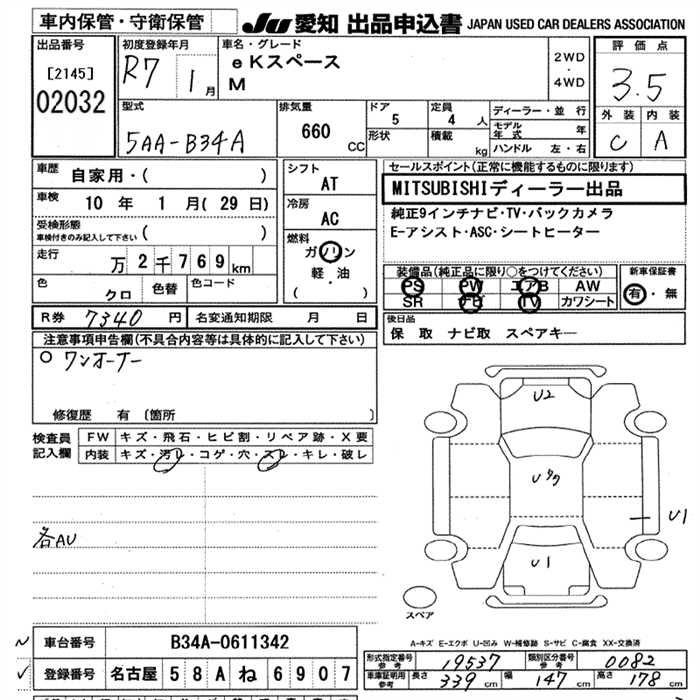 車内保管・守衛保管
JU 愛知 出品申込書 JAPAN USED CAR DEALERS ASSOCIATION
出品番号
[2145]
02032
初度登録年月
R7 1月
車名・グレード
eKスペース
M
2WD
・
4WD
評価点
3.5
外装 内装
C A
型式
5AA-B34A
排気量
660 CC
ドア
5
形状
定員
4 人
積載 kg
ディーラー・並行
モデル年式 年
ハンドル 左・右
車歴 自家用・( )
車検 10 年 1 月(29 日)
受検形態
車検付きのみ記入して下さい ( )
走行 万 2 千 7 6 9 km
色 クロ 色替 色コード
R券 7340 円 名変通知期限 月 日
シフト
AT
冷房
AC
燃料
ガソリン
軽・油
( )
セールスポイント(正常に機能するものに限ります)
MITSUBISHIディーラー出品
純正9インチナビ・TV・バックカメラ
E-アシスト・ASC・シートヒーター
装備品(純正品に限り○をつけてください)
PS PW エアB AW
SR FB TV カワシート
新車保証書
有・無
後日品
保 取 ナビ取 スペアキー
注意事項申告欄(不具合内容等は具体的に記入して下さい)
○ ワンオーナー
修復歴 有 〔箇所 〕
検査員記入欄
FW キズ・飛石・ヒビ割・リペア跡・X要
内装 キズ・汚レ・コゲ・穴・スレ・キレ・破レ
各AU
U2
U1
U1
スペア
A-キズ E-エクボ U-凹み W-補修跡 S-サビ C-腐食 XX-交換済
車台番号 B34A-0611342
登録番号 名古屋 5 8 A ね 6 9 0 7
形式指定番号 参考 19537 類別区分番号 参考 0082
車庫証明用 参考 長さ 339 cm 幅 147 cm 高さ 178 cm